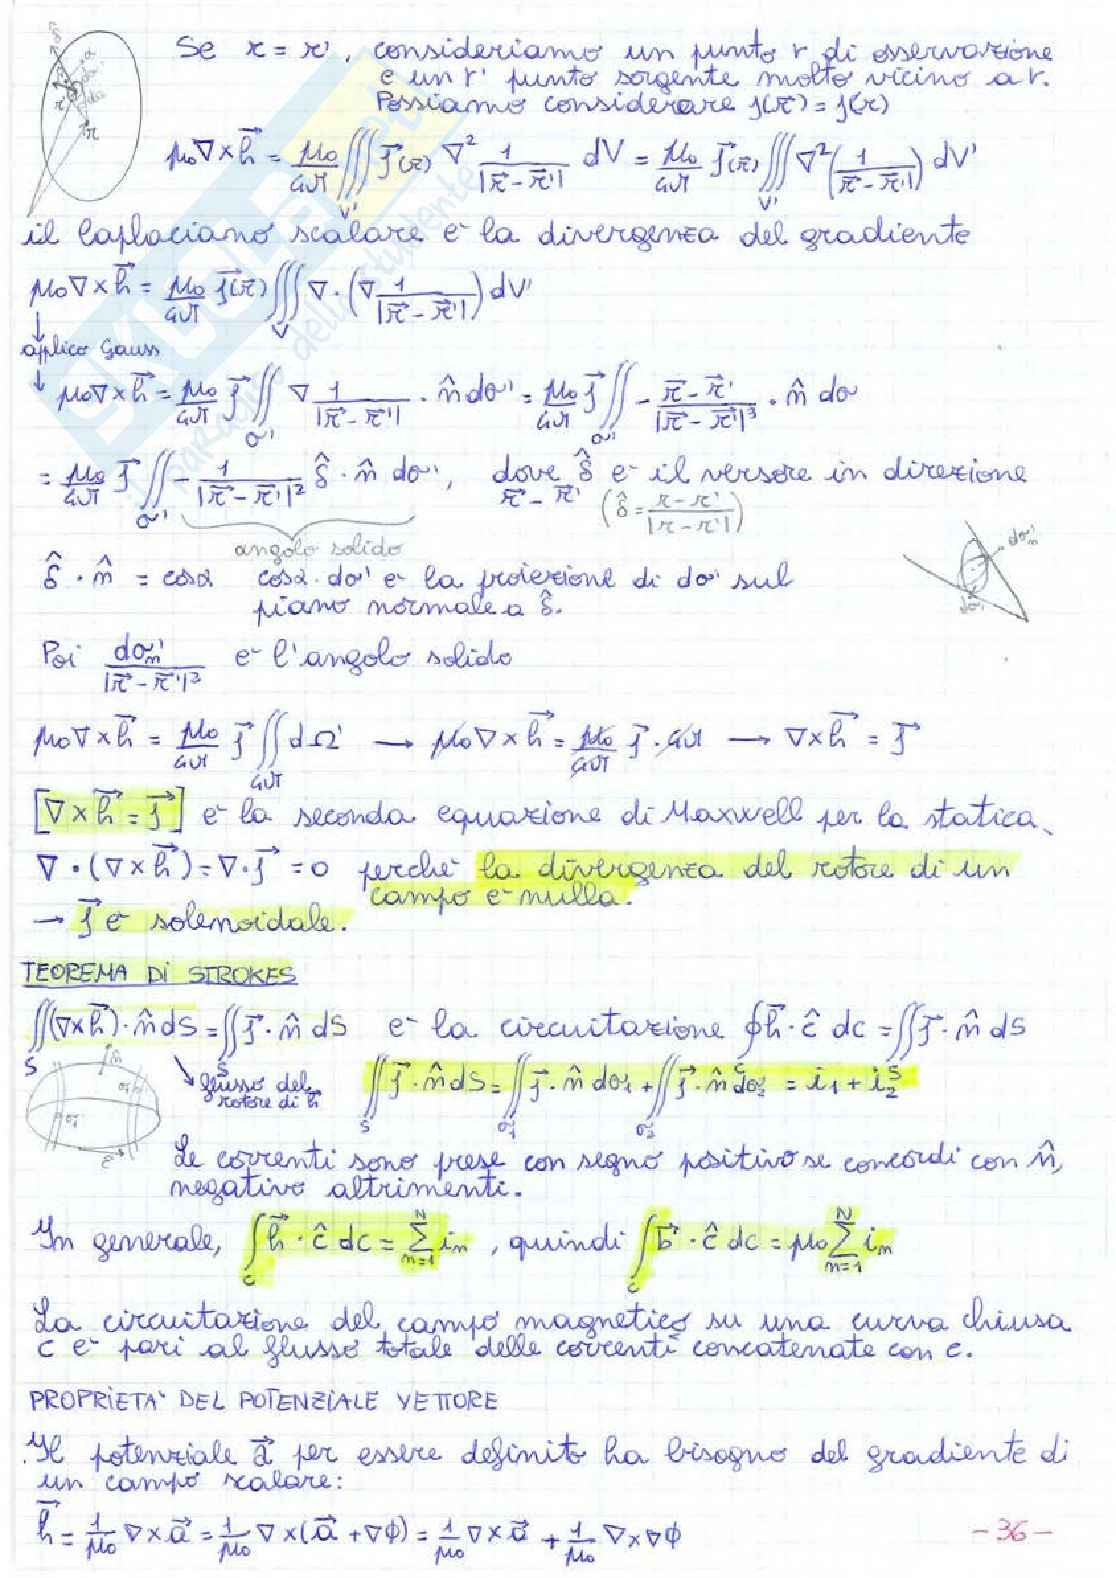 Se r = r', consideriamo un punto r di osservazione
e un r' punto sorgente molto vicino a r.
Possiamo considerare J(r') = J(r)
μ₀∇×h⃗ = μ₀/4π ∭_V' J⃗(r) ∇² 1/|r⃗ - r⃗'| dV = μ₀/4π J⃗(r) ∭_V' ∇²(1/|r⃗ - r⃗'|) dV'
il laplaciano scalare è la divergenza del gradiente
μ₀∇×h⃗ = μ₀/4π J⃗(r) ∭_V ∇·(∇ 1/|r⃗ - r⃗'|) dV'
applico Gauss
μ₀∇×h⃗ = μ₀/4π J⃗ ∬_σ' ∇ 1/|r⃗ - r⃗'| · n̂ dσ' = μ₀/4π J⃗ ∬_σ' - (r⃗ - r⃗')/|r⃗ - r⃗'|³ · n̂ dσ
= μ₀/4π J⃗ ∬_σ' - 1/|r⃗ - r⃗'|² δ̂ · n̂ dσ', dove δ̂ è il versore in direzione
r⃗ - r⃗' (δ̂ = (r - r')/|r - r'|)
angolo solido
δ̂ · n̂ = cosα cosα · dσ' è la proiezione di dσ' sul
piano normale a δ̂.
Poi dσ'n/|r⃗ - r⃗'|² è l'angolo solido
μ₀∇×h⃗ = μ₀/4π J⃗ ∬_4π dΩ' → μ₀∇×h⃗ = μ₀/4π J⃗ · 4π → ∇×h⃗ = J⃗
[∇×h⃗ = J⃗] è la seconda equazione di Maxwell per la statica.
∇·(∇×h⃗) = ∇·J⃗ = 0 perché la divergenza del rotore di un
campo è nulla.
→ J⃗ è solenoidale.
TEOREMA Di STROKES
∬_S (∇×h⃗)·n̂ dS = ∬_S J⃗·n̂ dS è la circuitazione ∮_C h⃗·ĉ dc = ∬_S J⃗·n̂ dS
flusso del
rotore di h⃗
∬_S J⃗·n̂ dS = ∬_σ1 J⃗·n̂ dσ1 + ∬_σ2 J⃗·n̂ dσ2 = i₁ + i₂
Le correnti sono prese con segno positivo se concordi con n̂,
negativo altrimenti.
In generale, ∫_C h⃗·ĉ dc = Σ_{n=1}^{N} iₙ, quindi ∫_C b⃗·ĉ dc = μ₀ Σ_{n=1}^{N} iₙ
La circuitazione del campo magnetico su una curva chiusa
c è pari al flusso totale delle correnti concatenate con c.
PROPRIETA' DEL POTENZIALE VETTORE
Il potenziale a⃗ per essere definito ha bisogno del gradiente di
un campo scalare:
h⃗ = 1/μ₀ ∇×a⃗ = 1/μ₀ ∇×(a⃗ + ∇ϕ) = 1/μ₀ ∇×a⃗ + 1/μ₀ ∇×∇ϕ
- 36 -